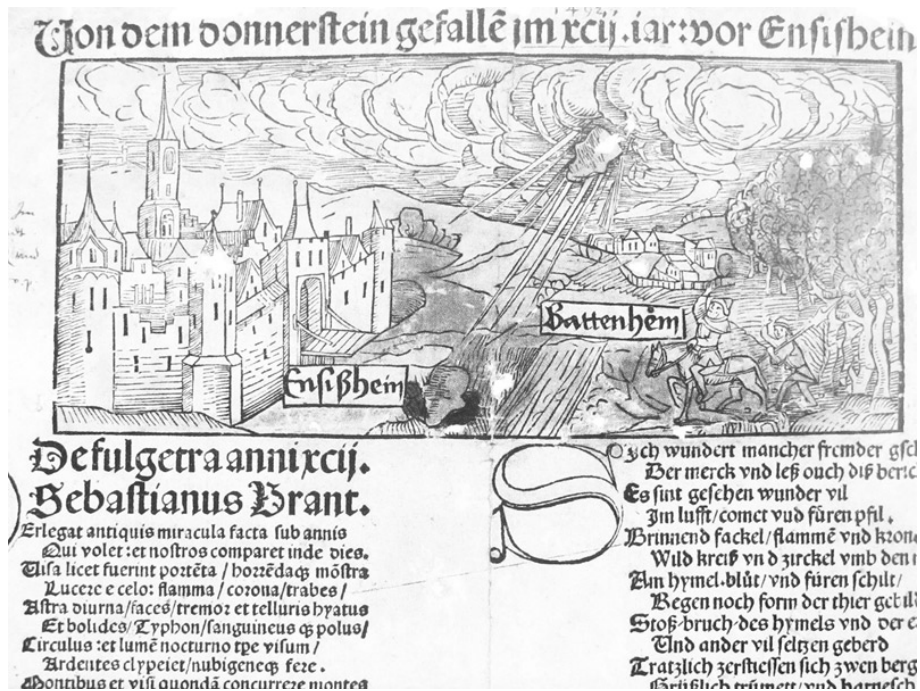 1492
Von dem donnerstein gefallē jm xcij. iar: vor Ensisheim
Battenhem
Ensißheim
De fulgetra anni xcij.
Sebastianus Brant.
Erlegat antiquis miracula facta sub annis
Qui volet: et nostros comparet inde dies.
Uisa licet fuerint portēta / horrēdaqȝ mōstra
Lucere e celo: flamma / corona / trabes /
Astra diurna / faces / tremor et telluris hyatus
Et bolides / Typhon / sanguineus qȝ polus /
Circulus: et lumē nocturno tpe visum /
Ardentes clypei et / nubigeneqȝ fere.
Montibus et visi quondā concurrere montes
Sich wundert mancher fremder
Der merck vnd leß ouch diß
Es sint gesehen wunder vil
Jm lufft / comet vnd fúren pfil.
Brinnend fackel / flammē vnd
Wild kreiß vnd zirckel vmb den
Am hymel. blůt / vnd fúren schilt /
Regen noch form der thier
Stoß-bruch des hymels vnd der
Vnd ander vil seltzen geberd
Tratzlich zerstiessen sich zwen berg
Grüßlich trümett / vnd